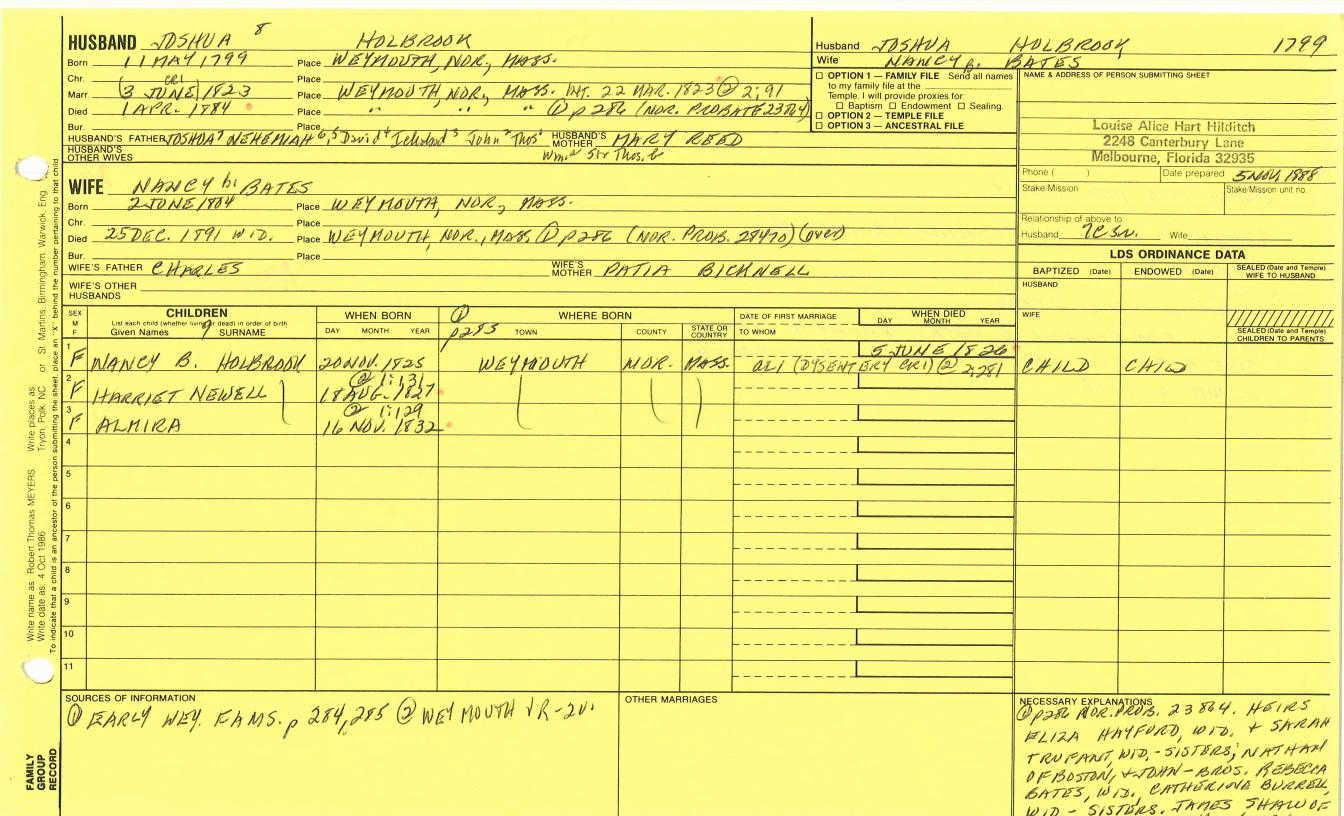 HUSBAND JOSHUA 8 HOLBROOK
Born 11 MAY 1799 Place WEYMOUTH, NOR, MASS.
Chr. Place
(CR1)
Marr. 3 JUNE 1823 Place WEYMOUTH, NOR., MASS. INT. 22 MAR. 1823 ② 2:91
Died 1 APR. 1884 Place " " " ① p 286 (NOR. PROBATE 23864)
Bur. Place
HUSBAND'S FATHER JOSHUA 7 NEHEMIAH 6, 5 David 4 Ichabod 3 John 2 Thos 1 HUSBAND'S MOTHER MARY REED
HUSBAND'S OTHER WIVES Sir Thos.
WIFE NANCY b. BATES
Born 2 JUNE 1804 Place WEYMOUTH, NOR., MASS.
Chr. Place
Died 25 DEC. 1891 WID. Place WEYMOUTH, NOR., MASS. ① p 286 (NOR. PROB. 28470) (over)
Bur. Place
WIFE'S FATHER CHARLES WIFE'S MOTHER PATIA BICKNELL
WIFE'S OTHER HUSBANDS
Husband JOSHUA HOLBROOK 1799
Wife NANCY b. BATES
☐ OPTION 1 — FAMILY FILE Send all names
to my family file at the
Temple. I will provide proxies for:
☐ Baptism ☐ Endowment ☐ Sealing.
☐ OPTION 2 — TEMPLE FILE
☐ OPTION 3 — ANCESTRAL FILE
NAME & ADDRESS OF PERSON SUBMITTING SHEET
Louise Alice Hart Hilditch
2248 Canterbury Lane
Melbourne, Florida 32935
Phone ( ) Date prepared 5 NOV 1988
Stake/Mission Stake/Mission unit no.
Relationship of above to
Husband Wife
LDS ORDINANCE DATA
BAPTIZED (Date) ENDOWED (Date) SEALED (Date and Temple) WIFE TO HUSBAND
HUSBAND
WIFE
SEALED (Date and Temple) CHILDREN TO PARENTS
SEX M F CHILDREN WHEN BORN ① WHERE BORN DATE OF FIRST MARRIAGE WHEN DIED
List each child (whether living or dead) in order of birth
Given Names 9 SURNAME DAY MONTH YEAR p285 TOWN COUNTY STATE OR COUNTRY TO WHOM DAY MONTH YEAR
1 F NANCY B. HOLBROOK 20 NOV. 1825 WEYMOUTH NOR. MASS. 5 JUNE 1826
(DYSENTERY CR1) ② 2:281 CHILD CHILD
② 1:131
2 F HARRIET NEWELL 18 AUG. 1827
② 1:129
3 F ALMIRA 16 NOV. 1832
4
5
6
7
8
9
10
11
SOURCES OF INFORMATION
① EARLY WEY. FAMS. p 284, 285 ② WEYMOUTH VR-2V.
OTHER MARRIAGES
NECESSARY EXPLANATIONS
① p286 NOR. PROB. 23864. HEIRS
ELIZA HAYFORD, WID. & SARAH
TRUFANT, WID. - SISTERS; NATHAN
OF BOSTON, & JOHN - BROS. REBECCA
BATES, WID., CATHERINE BURRELL,
WID - SISTERS. JAMES SHAW OF
Write name as: Robert Thomas MEYERS Write places as: Tryon, Polk, NC or St. Martins, Birmingham, Warwick, Eng
Write date as: 4 Oct 1986
To indicate that a child is an ancestor of the person submitting the sheet, place an "X" behind the number pertaining to that child
FAMILY
GROUP
RECORD